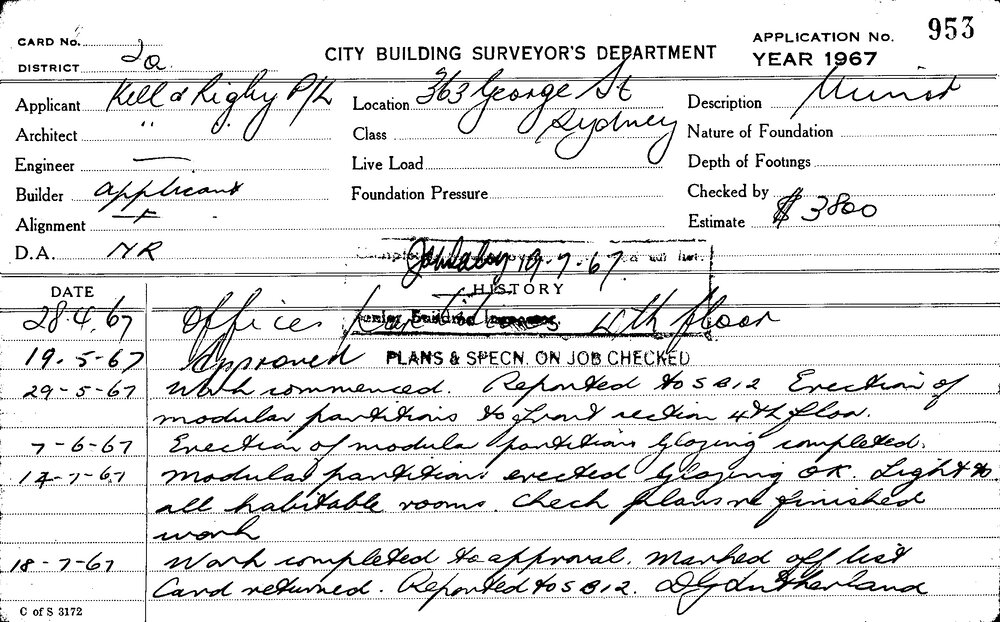 CARD No.
DISTRICT 2a
CITY BUILDING SURVEYOR'S DEPARTMENT
APPLICATION No. 953
YEAR 1967
Applicant Kell & Rigby P/L
Location 363 George St
Sydney
Description
Architect "
Class
Nature of Foundation
Engineer —
Live Load
Depth of Footings
Builder applicant
Foundation Pressure
Checked by
Alignment
Estimate $ 3800
D.A. NR
19-7-67
HISTORY
DATE
28.4.67 Offices partitions 4th floor
19-5-67 Approved PLANS & SPECN. ON JOB CHECKED
29-5-67 Work commenced. Reported to S B 12 Erection of
modular partitions to front section 4th floor.
7-6-67 Erection of modular partitions glazing completed.
17-7-67 Modular partitions erected glazing OK. Light to
all habitable rooms. Check plans re finished
work
18-7-67 Work completed to approval. Marked off list
Card returned. Reported to S B 12. D G Sutherland
C of S 3172